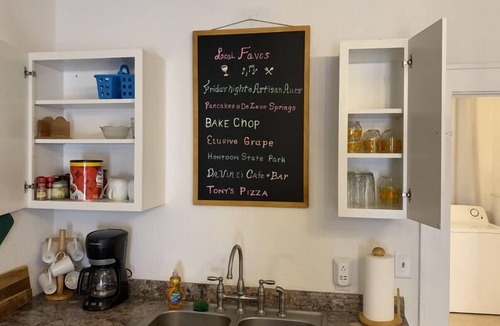 Local Faves
Friday night @ Artisan Alley
Pancakes @ DeLeon Springs
BAKE CHOP
Elusive Grape
Hontoon State Park
Da Vinci Cafe + Bar
TONY'S PIZZA